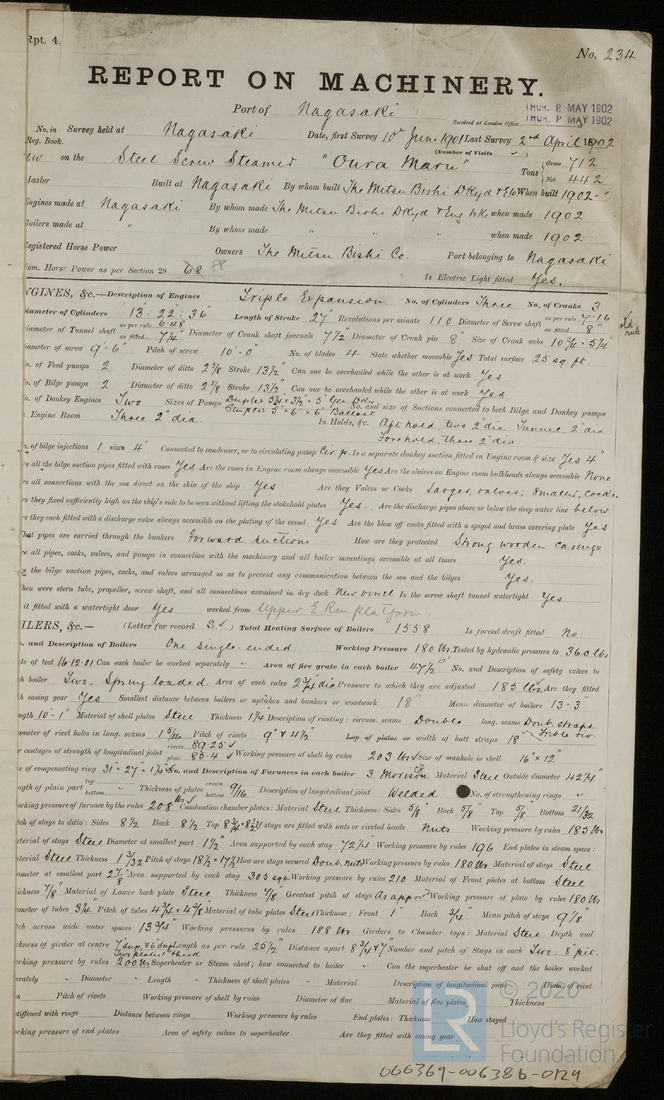 Rpt. 4.
No. 234
REPORT ON MACHINERY.
Port of Nagasaki
Received at London Office THUR. 8 MAY 1902
No. in Survey held at Nagasaki Date, first Survey 10th June 1901 Last Survey 2nd April 1902
Reg. Book. (Number of Visits
on the Steel Screw Steamer "Oura Maru" Tons Gross 712 Net 442
Master Built at Nagasaki By whom built The Mitsu Bishi Dkyd & E When built 1902
Engines made at Nagasaki By whom made The Mitsu Bishi Dkyd & Eng Wks when made 1902
Boilers made at " By whom made " " when made 1902
Registered Horse Power Owners The Mitsu Bishi Co. Port belonging to Nagasaki
Nom. Horse Power as per Section 28 68 88 Is Electric Light fitted Yes.
ENGINES, &c.—Description of Engines Triple Expansion No. of Cylinders Three No. of Cranks 3
Diameter of Cylinders 13 : 22 : 36" Length of Stroke 27" Revolutions per minute 110 Diameter of Screw shaft as per rule 7.16 as fitted 8"
Diameter of Tunnel shaft as per rule 6.48 as fitted 7 1/4" Diameter of Crank shaft journals 7 1/2" Diameter of Crank pin 8" Size of Crank webs 10 3/4 × 5 1/4
Diameter of screw 9'-6" Pitch of screw 10'-0" No. of blades 4 State whether moveable Yes Total surface 25 sq. ft.
No. of Feed pumps 2 Diameter of ditto 2 7/8 Stroke 13 1/2" Can one be overhauled while the other is at work Yes
No. of Bilge pumps 2 Diameter of ditto 2 5/8 Stroke 13 1/2" Can one be overhauled while the other is at work Yes
No. of Donkey Engines Two Sizes of Pumps Duplex 5 1/4 × 3 1/2 × 5" Gen. Dky Simplex 5" × 6" × 6" Ballast No. and size of Suctions connected to both Bilge and Donkey pumps
Engine Room Three 2" dia. In Holds, &c. Aft hold, two 2" dia Tunnel 2" dia
Forehold, three 2" dia
No. of bilge injections 1 sizes 4" Connected to condenser, or to circulating pump Cir. p. Is a separate donkey suction fitted in Engine room & size Yes 4"
Are all the bilge suction pipes fitted with roses Yes Are the roses in Engine room always accessible Yes Are the sluices on Engine room bulkheads always accessible None
Are all connections with the sea direct on the skin of the ship Yes Are they Valves or Cocks Larger, valves; smaller, cocks.
Are they fixed sufficiently high on the ship's side to be seen without lifting the stokehold plates Yes. Are the discharge pipes above or below the deep water line below
Are they each fitted with a discharge valve always accessible on the plating of the vessel Yes Are the blow off cocks fitted with a spigot and brass covering plate Yes
What pipes are carried through the bunkers Forward suctions How are they protected Strong wooden casings
Are all pipes, cocks, valves, and pumps in connection with the machinery and all boiler mountings accessible at all times Yes.
Are the bilge suction pipes, cocks, and valves arranged so as to prevent any communication between the sea and the bilges Yes.
When were stern tube, propeller, screw shaft, and all connections examined in dry dock New vessel Is the screw shaft tunnel watertight Yes
Is it fitted with a watertight door Yes worked from Upper E Rm platform.
BOILERS, &c.— (Letter for record S.) Total Heating Surface of Boilers 1558 Is forced draft fitted No.
No. and Description of Boilers One Single-ended. Working Pressure 180 lbs Tested by hydraulic pressure to 360 lbs
Date of test 16.12.01 Can each boiler be worked separately - Area of fire grate in each boiler 47 1/2 No. and Description of safety valves to
each boiler Two. Spring loaded. Area of each valve 2 3/4 dia Pressure to which they are adjusted 185 lbs Are they fitted
with easing gear Yes Smallest distance between boilers or uptakes and bunkers or woodwork 18" Mean diameter of boilers 13-3
Length 10'-1" Material of shell plates Steel Thickness 1 1/4 Description of riveting: circum. seams Double long. seams Doub. straps Treble riv.
Diameter of rivet holes in long. seams 1 5/16 Pitch of rivets 9" & 4 1/2" Lap of plates or width of butt straps 18"
Per centages of strength of longitudinal joint rivets 89.25 plate 85.4 Working pressure of shell by rules 203 lbs Size of manhole in shell 16" × 12"
Size of compensating ring 31" × 27" × 1 1/4" No. and Description of Furnaces in each boiler 3. Morison Material Steel Outside diameter 42 1/4"
Length of plain part top bottom Thickness of plates crown bottom 9/16 Description of longitudinal joint Welded No. of strengthening rings
Working pressure of furnace by the rules 208 lbs Combustion chamber plates: Material Steel Thickness: Sides 5/8" Back 5/8" Top 5/8" Bottom 21/32
Pitch of stays to ditto: Sides 8 1/2 Back 8 1/2 Top If stays are fitted with nuts or riveted heads Nuts Working pressure by rules 185 lbs
Material of stays Steel Diameter at smallest part 1 1/2" Area supported by each stay 72 1/4 Working pressure by rules 196 End plates in steam space:
Material Steel Thickness 1 3/32 Pitch of stays 18 1/2 × 17 1/2 How are stays secured Doub. nuts Working pressure by rules 180 lbs Material of stays Steel
Diameter at smallest part 2 7/8 Area supported by each stay 303 sq in Working pressure by rules 210 Material of Front plates at bottom Steel
Thickness 7/8" Material of Lower back plate Steel Thickness 7/8 Greatest pitch of stays As appd Working pressure of plate by rules 180 lbs
Diameter of tubes 3 1/4" Pitch of tubes 4 3/4 × 4 5/8 Material of tube plates Steel Thickness: Front 1" Back 3/4" Mean pitch of stays 9 7/8
Pitch across wide water spaces 13 3/4" Working pressures by rules 188 lbs Girders to Chamber tops: Material Steel Depth and
thickness of girder at centre Length as per rule 25 1/2 Distance apart 8 3/4 & 7 Number and pitch of Stays in each Two: 8" pit.
Working pressure by rules 200 lbs Superheater or Steam chest; how connected to boiler - Can the superheater be shut off and the boiler worked
separately - Diameter - Length - Thickness of shell plates - Material Description of longitudinal joint Diam. of rivet
holes Pitch of rivets Working pressure of shell by rules Diameter of flue Material of flue plates Thickness
If stiffened with rings Distance between rings Working pressure by rules End plates: Thickness How stayed
Working pressure of end plates Area of safety valves to superheater Are they fitted with easing gear
© 2020
Lloyd's Register
Foundation
LR
006369-006386-0129